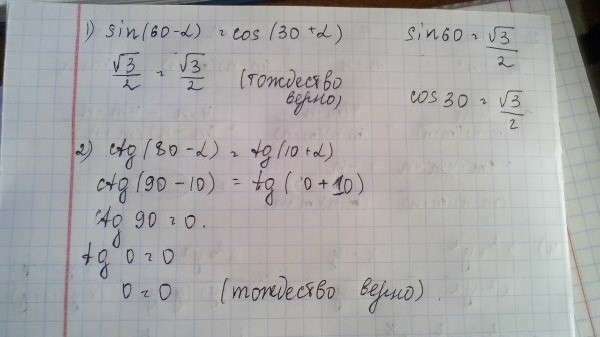 1) sin(60-α) = cos(30+α)
√3/2 = √3/2 (тождество верно)
sin60 = √3/2
cos30 = √3/2
2) ctg(80-α) = tg(10+α)
ctg(90-10) = tg(0+10)
ctg 90 = 0.
tg 0 = 0
0 = 0 (тождество верно).